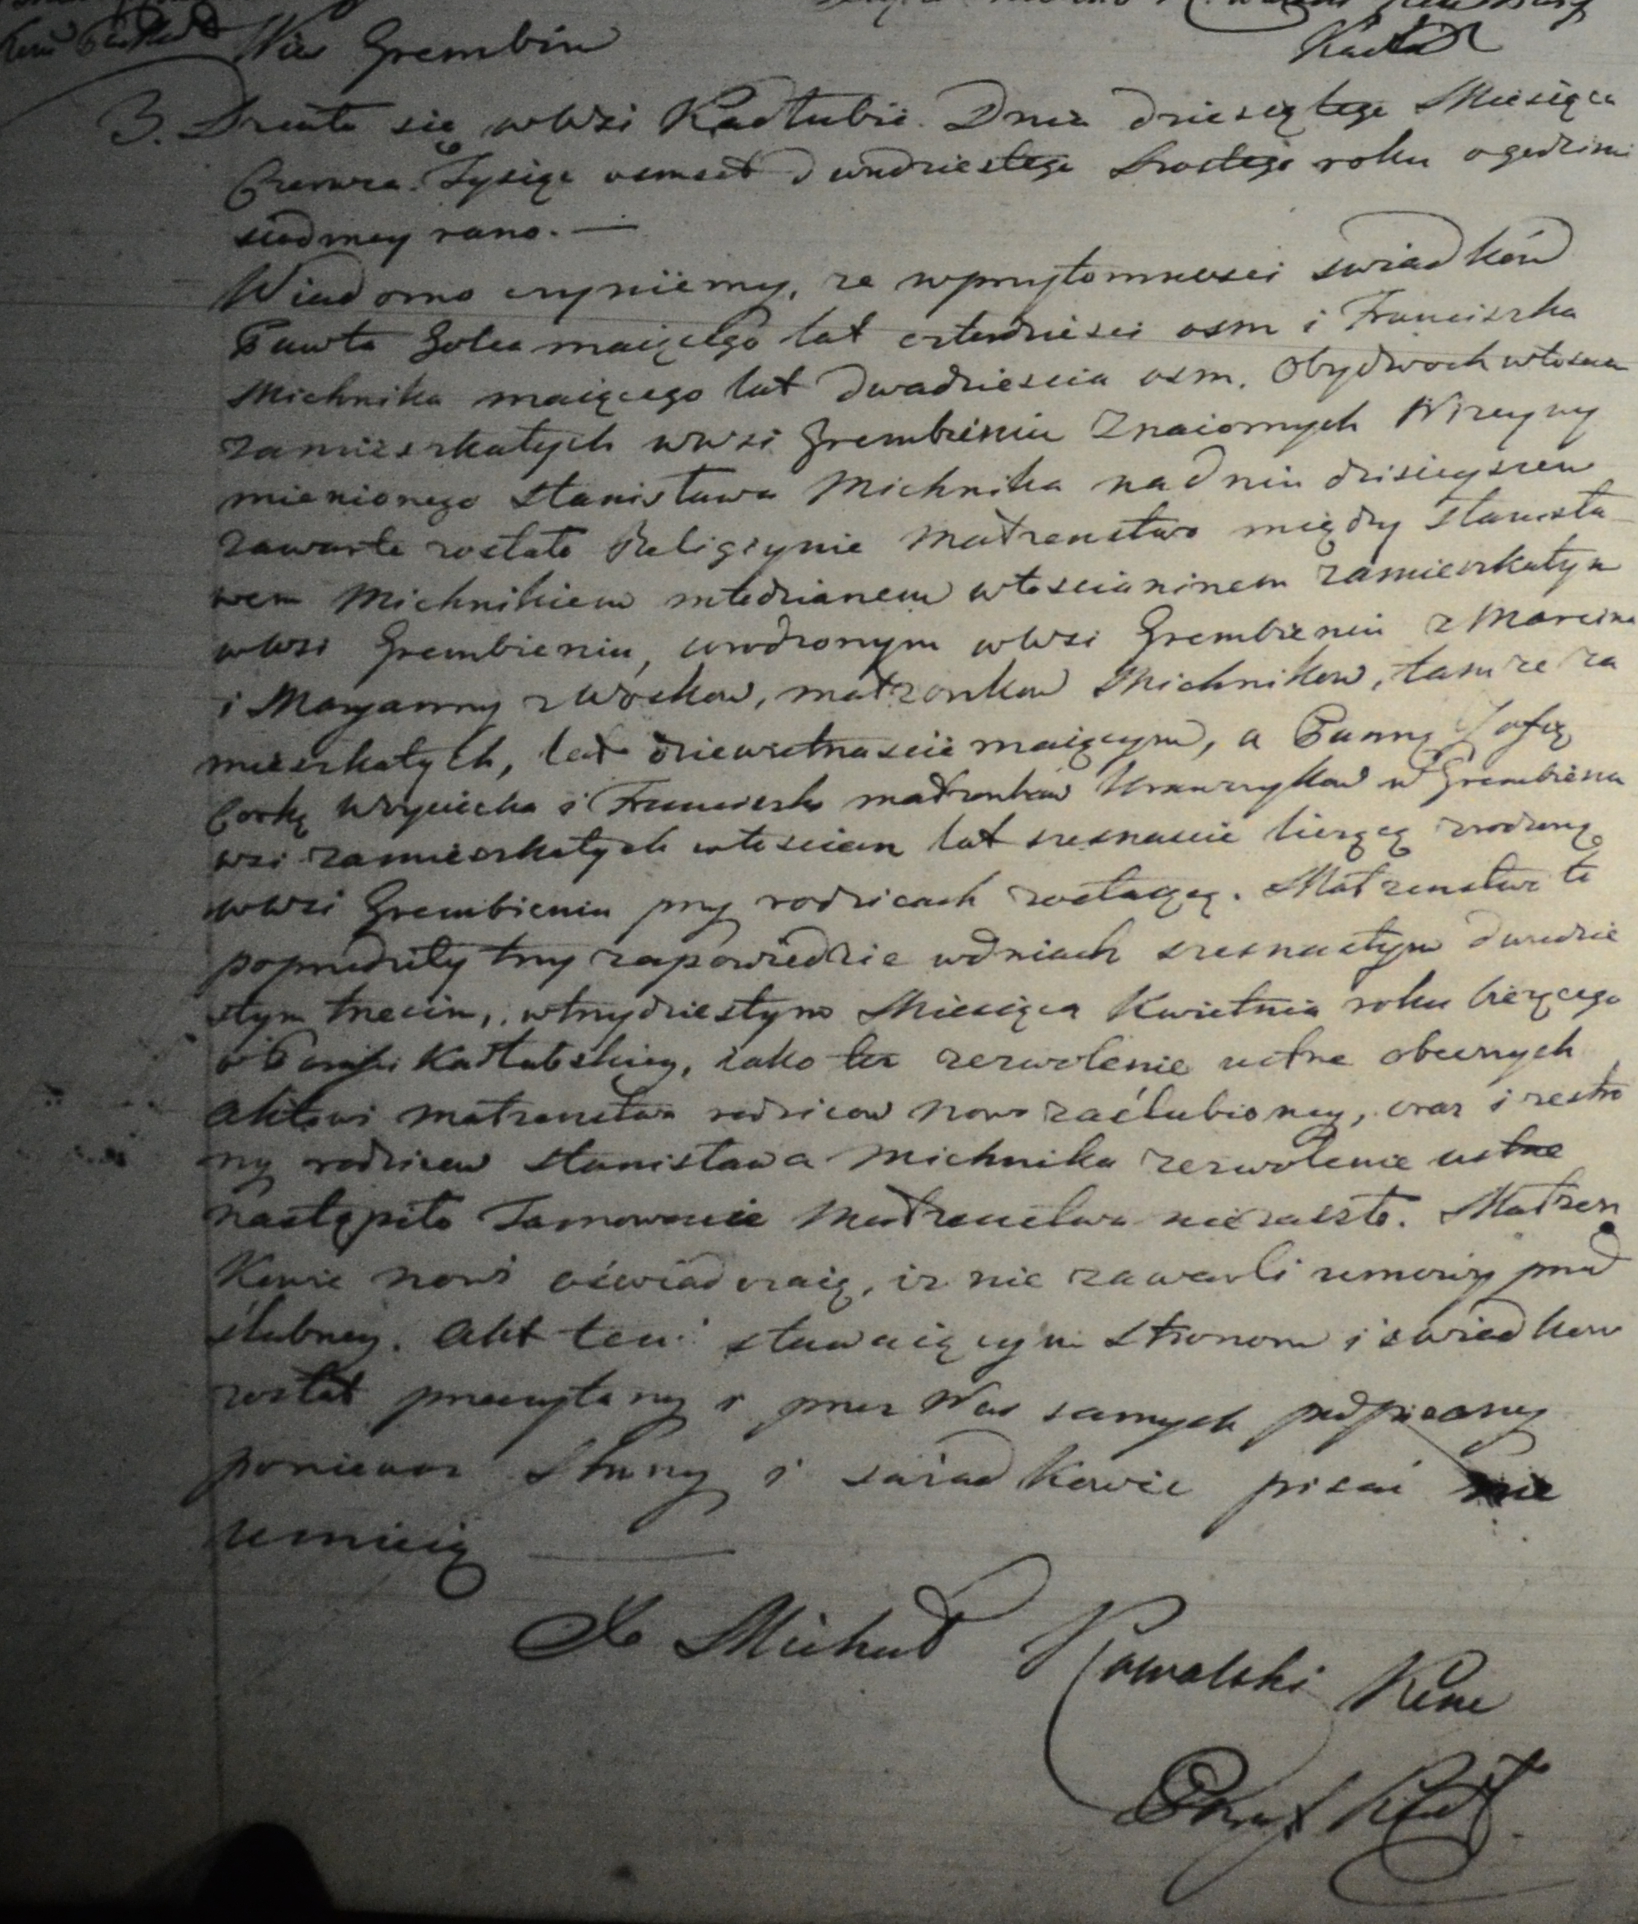 Wies Grembin
3. Działo się wWsi Kadłubie. Dnia dziesiątego Miesiąca
Czerwca Tysiąc osmset dwudziestego szostego roku o godzinie
siodmey rano. —
Wiadomo czyniemy, ze wprzytomnosci swiadków
Pawła Golca maiącego lat czterdziesci osm i Franciszka
Michnika maiącego lat dwadziescia osm. Obydwoch włoscian
zamieszkałych wWsi Grembieniu Znaiomych
mienionego Stanisława Michnika na dniu dzisieyszem
zawarte zostało Religiynie Małzenstwo między Stanisła
wem Michnikiem młodzianem włoscianinem zamieszkałym
wWsi Grembieniu, urodzonym wWsi Grembieniu z Marcina
i Maryanny z Woskow, małzonkow Michnikow, tamze za
mieszkałych, lat dziewietnascie maiącym, a Panną Zofią
Corką Woyciecha i Franciszki małzonków Krawczykow w Grembieniu
wsi zamieszkałych włoscian lat szesnascie liczącą zrodzoną
wWsi Grembieniu przy rodzicach zostaiącą. Małzenstwo to
poprzedziły trzy zapowiedzie wdniach szesnastym dwudzie
stym trzecim, wtrzydziestym Miesiąca Kwietnia roku bieżącego
w Parafii Kadłubskiey, iako tez zezwolenie ustne obecnych
Aktowi małzenstwa rodzicow nowo zaślubioney, oraz i ze stro
ny rodzicow Stanisława Michnika zezwolenie ustne
nastąpiło Tamowanie Małzenstwa nie zaszło. Małzon
kowie nowi oświadczaią, iz nie zawarli umowy przed
ślubney. Akt ten stawaiącym stronom i swiadkom
został przeczytany i przez Nas samych podpisany
poniewaz Strony i swiadkowie pisać nie
umieią
X Michał Kowalski Kom